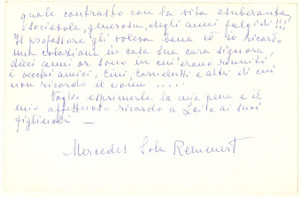 quale contrasto con la vita esuberante
societole, generosa, degli anni fulgidi!!!
Il professore gli voleva bene ed io ricordo
una colazione in casa sua cara signora,
dieci anni or sono in cui erano riuniti
i vecchi amici, e altri di cui
non ricordo il nome .....
Voglio esprimerle la mia pena e il
mio affettuoso ricordo a Lei e ai suoi
figliuoli —
Mercedes